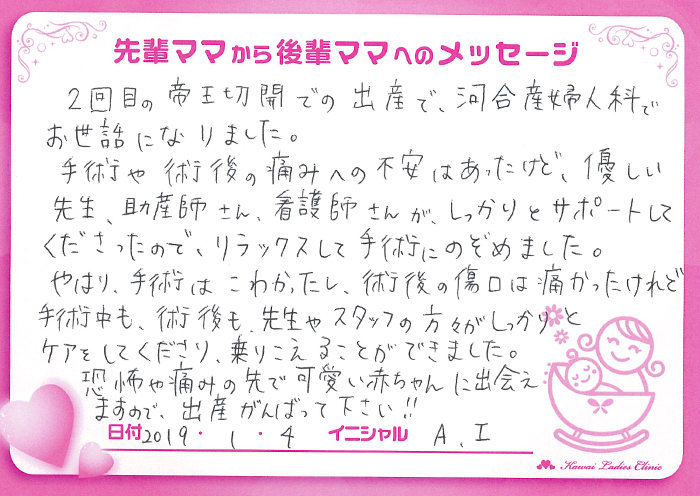 先輩ママから後輩ママへのメッセージ
2回目の帝王切開での出産で、河合産婦人科で
お世話になりました。
手術や術後の痛みへの不安はあったけど、優しい
先生、助産師さん、看護師さんが、しっかりとサポートして
くださったので、リラックスして手術にのぞめました。
やはり、手術はこわかったし、術後の傷口は痛かったけれど
手術中も、術後も、先生やスタッフの方々がしっかりと
ケアをしてくださり、乗りこえることができました。
恐怖や痛みの先で可愛い赤ちゃんに出会え
ますので、出産がんばって下さい!!
日付2019・1・4 イニシャル A、I
Kawai Ladies Clinic